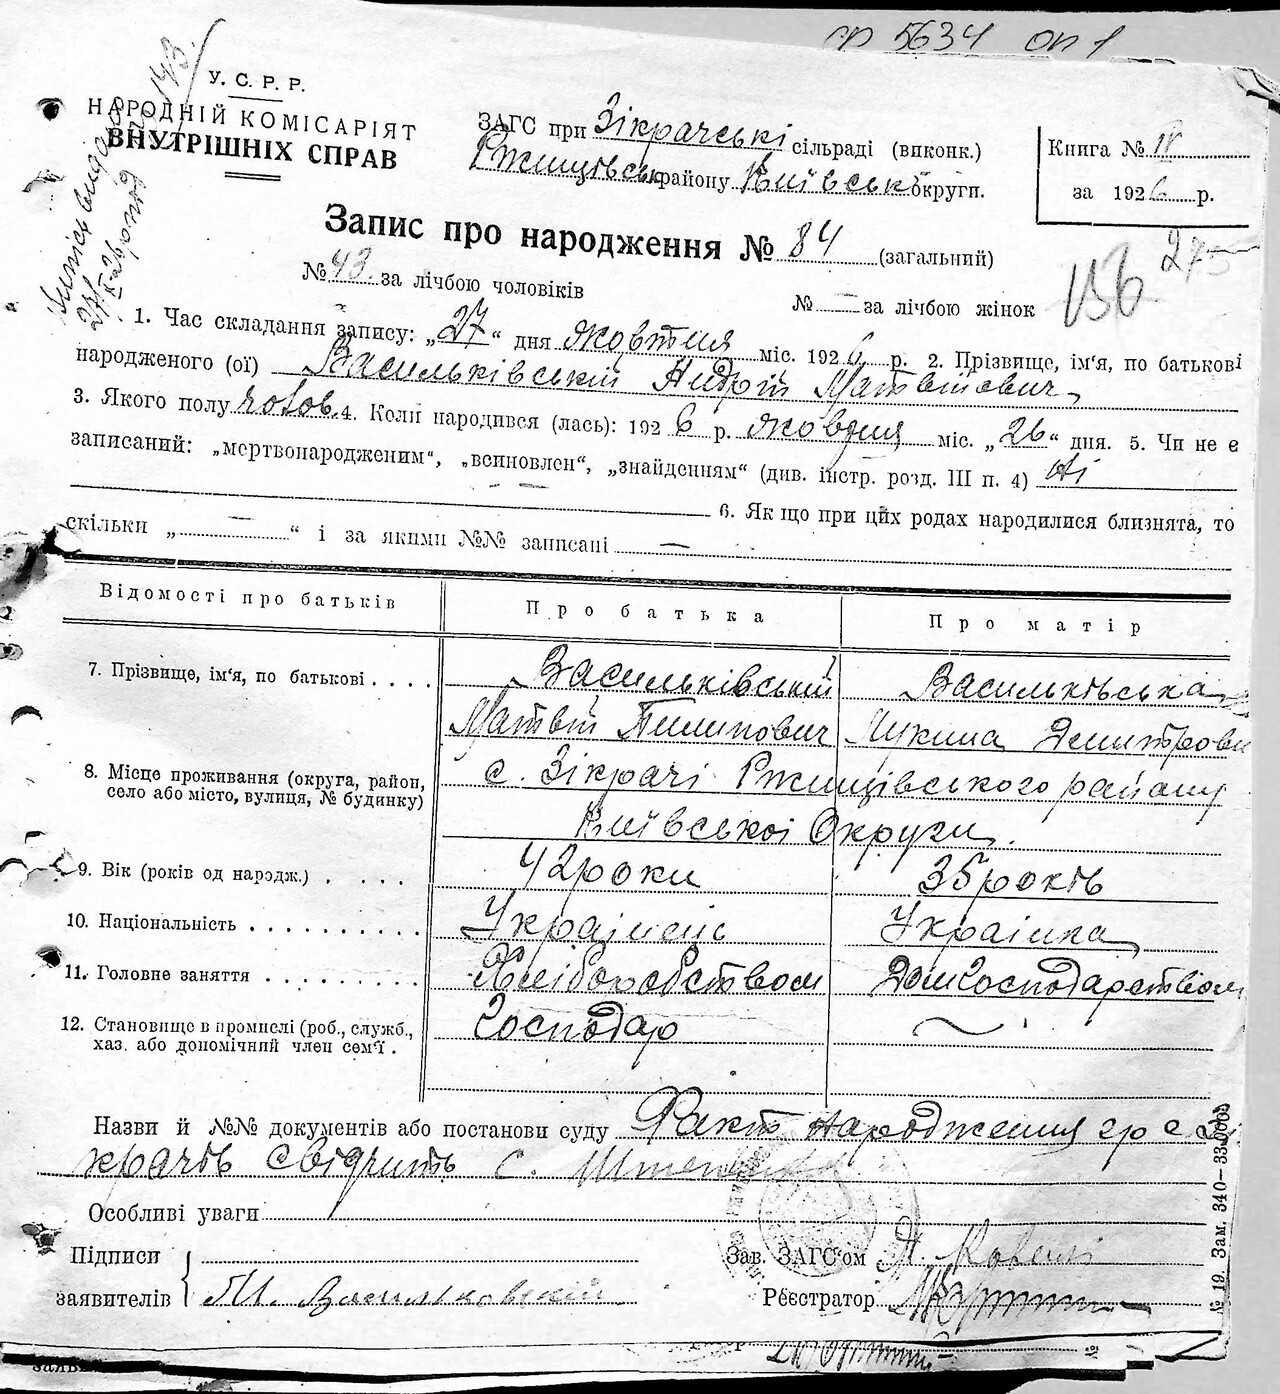 ср 5634 оп 1
У. С. Р. Р.
НАРОДНІЙ КОМІСАРІЯТ
ВНУТРІШНІХ СПРАВ
ЗАГС при Зікрачські сільраді (виконк.)
Ржищівськ району Київськ округи.
Книга № IV
за 1926 р.
143
27/X-26
Запис про народження № 84 (загальний)
№ 43 за лічбою чоловіків
№ — за лічбою жінок
156 275
1. Час складання запису: „27“ дня жовтня міс. 1926 р. 2. Прізвище, ім'я, по батькові
народженого (ої) Васильківський Андрій Матвійович
3. Якого полу чолов. 4. Коли народився (лась): 1926 р. жовтня міс. „26“ дня. 5. Чи не є
записаний: „мертвонародженим“, „всиновлен“, „знайденям“ (див. інстр. розд. III п. 4) Ні
6. Якщо при цих родах народилися близнята, то
скільки „ — “ і за якими №№ записані —
Відомості про батьків Про батька Про матір
7. Прізвище, ім'я, по батькові . . . . Васильківський Васильківська
Матвій Пилипович Лукина Дмитровн
8. Місце проживання (округа, район, село або місто, вулиця, № будинку) с. Зікрачі Ржищівського району
Київської Округи.
9. Вік (років од народж.) . . . . 42 роки 35 років
10. Національність . . . . . . . . . . Українець Українка
11. Головне заняття . . . . . . . . . Хліборобством Домгосподарством
12. Становище в промислі (роб., служб., хаз. або допомічний член сем'ї . Господар ~
Назви й №№ документів або постанови суду Факт народження гр с Зі
крачів свідчить с.
Особливі уваги
Підписи
заявителів М. Васильковский
Зав. ЗАГС'ом
Реєстратор
№ 19. Зам. 340—33.000